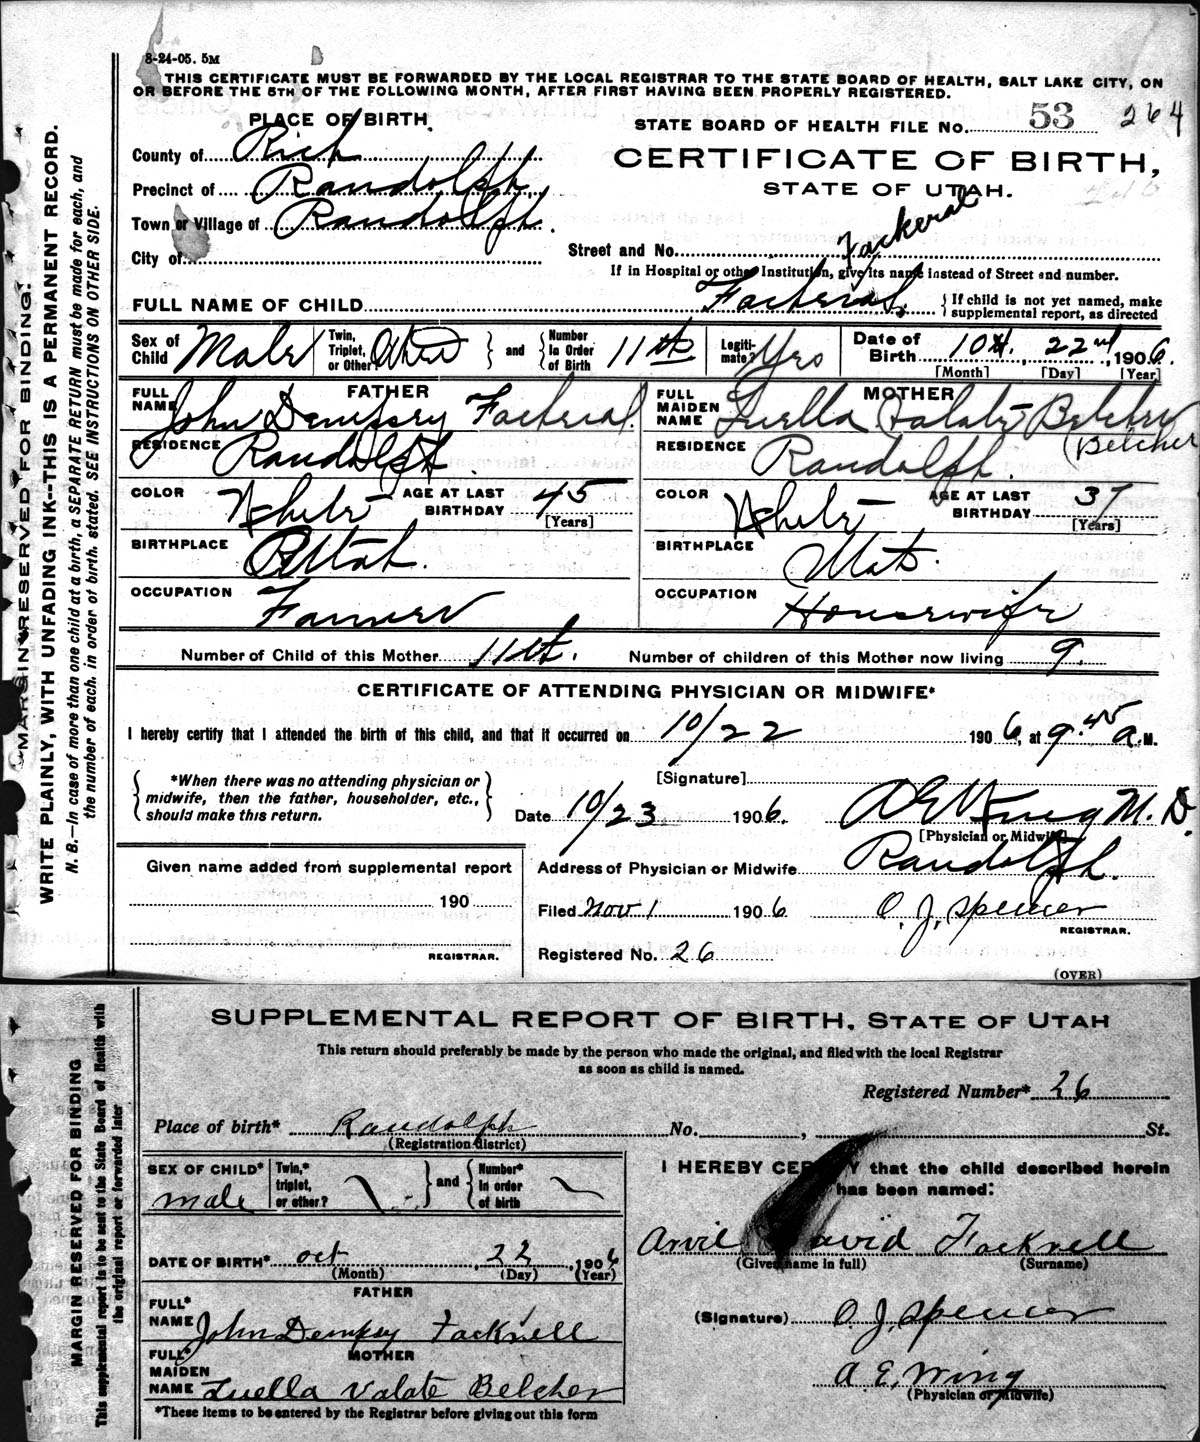 8-24-05. 5M
THIS CERTIFICATE MUST BE FORWARDED BY THE LOCAL REGISTRAR TO THE STATE BOARD OF HEALTH, SALT LAKE CITY, ON
OR BEFORE THE 5TH OF THE FOLLOWING MONTH, AFTER FIRST HAVING BEEN PROPERLY REGISTERED.
PLACE OF BIRTH.
STATE BOARD OF HEALTH FILE No. 53 264
County of Rich
CERTIFICATE OF BIRTH,
Precinct of Randolph
STATE OF UTAH.
Town or Village of Randolph.
City of
Street and No.
If in Hospital or other Institution, give its name instead of Street and number.
FULL NAME OF CHILD Fackeral. {If child is not yet named, make
supplemental report, as directed
Fackeral
Sex of Child Male Twin, Triplet, or Other? and Number In Order of Birth 11th Legiti-mate? Yes Date of Birth 10th, 22nd, 1906.
[Month] [Day] [Year]
FATHER
FULL NAME John Dempsey Fackeral.
RESIDENCE Randolph
COLOR White AGE AT LAST BIRTHDAY 45 [Years]
BIRTHPLACE Utah.
OCCUPATION Farmer
MOTHER
FULL MAIDEN NAME Luella Valate Belcher
(Belcher
RESIDENCE Randolph.
COLOR White AGE AT LAST BIRTHDAY 37 [Years]
BIRTHPLACE Utah.
OCCUPATION Housewife
Number of Child of this Mother 11th. Number of children of this Mother now living 9.
CERTIFICATE OF ATTENDING PHYSICIAN OR MIDWIFE*
I hereby certify that I attended the birth of this child, and that it occurred on 10/22 1906, at 9.45 A.M.
{*When there was no attending physician or
midwife, then the father, householder, etc.,
should make this return.}
[Signature]
Date 10/23 1906. A E Wing M.D.
[Physician or Midwife]
Given name added from supplemental report
190
REGISTRAR.
Address of Physician or Midwife Randolph.
Filed Nov 1 1906 O. J. Spencer
REGISTRAR.
Registered No. 26
(OVER)
MARGIN RESERVED FOR BINDING.
WRITE PLAINLY, WITH UNFADING INK--THIS IS A PERMANENT RECORD.
N. B.—In case of more than one child at a birth, a SEPARATE RETURN must be made for each, and
the number of each, in order of birth, stated. SEE INSTRUCTIONS ON OTHER SIDE.
SUPPLEMENTAL REPORT OF BIRTH, STATE OF UTAH
This return should preferably be made by the person who made the original, and filed with the local Registrar
as soon as child is named.
Registered Number* 26
Place of birth* Randolph No. , St.
(Registration district)
SEX OF CHILD* male Twin,* triplet, or other? and Number* In order of birth
DATE OF BIRTH* Oct 22, 1906
(Month) (Day) (Year)
FATHER
FULL* NAME John Dempsy Facknell
MOTHER
FULL* MAIDEN NAME Luella Valate Belcher
*These items to be entered by the Registrar before giving out this form
I HEREBY CERTIFY that the child described herein
has been named:
Arvil David Facknell
(Given name in full) (Surname)
(Signature) O. J. Spencer
A. E. Wing
(Physician or Midwife)
MARGIN RESERVED FOR BINDING
This supplemental report is to be sent to the State Board of Health with
the original report or forwarded later